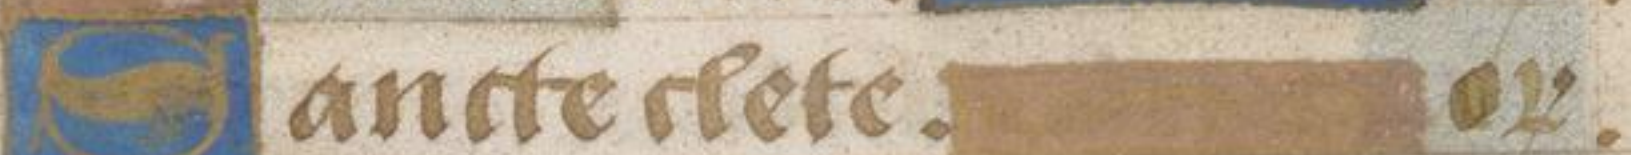 Sancte clete. or.